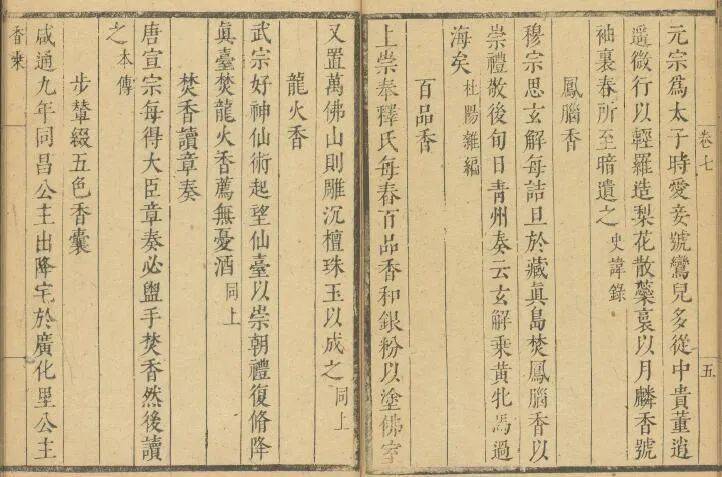 卷七
五
元宗爲太子時愛妾號鸞兒多從中貴董逍
遥微行以輕羅造梨花散蘂裛以月麟香號
袖裏春所至暗遺之 史諱錄
鳳腦香
穆宗思玄解每詰旦於藏眞島焚鳳腦香以
崇禮敬後旬日青州奏云玄解乘黃牝馬過
海矣 杜陽雜編
百品香
上崇奉釋氏每春百品香和銀粉以塗佛室
又置萬佛山則雕沉檀珠玉以成之 同上
龍火香
武宗好神仙術起望仙臺以崇朝禮復脩降
眞臺焚龍火香薦無憂酒 同上
焚香讀章奏
唐宣宗每得大臣章奏必盥手焚香然後讀
之 本傳
步輦綴五色香囊
咸通九年同昌公主出降宅於廣化里公主
香乘